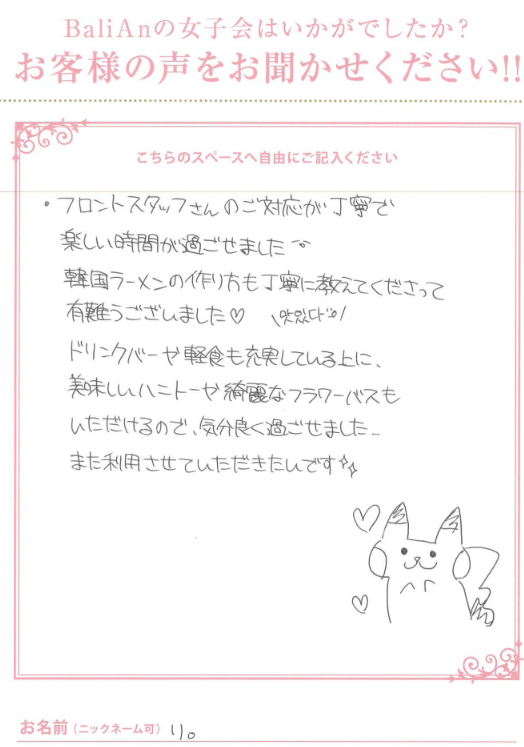 BaliAnの女子会はいかがでしたか？
お客様の声をお聞かせください!!
こちらのスペースへ自由にご記入ください
・フロントスタッフさんのご対応が丁寧で
楽しい時間が過ごせました
韓国ラーメンの作り方も丁寧に教えてくださって
有難うございました♡
ドリンクバーや軽食も充実している上に、
美味しいハニトーや綺麗なフラワーバスも
いただけるので、気分良く過ごせました…
また利用させていただきたいです
お名前（ニックネーム可） りo